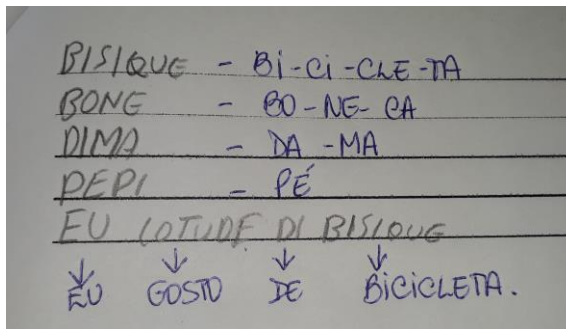 BISIQUE - Bi-Ci-CLE-TA
BONE - BO-NE-CA
DIMA - DA-MA
PEPI - PÉ
EU LOTUDE DI BISIQUE
↓ ↓ ↓ ↓
EU GOSTO DE BiCiCLETA.